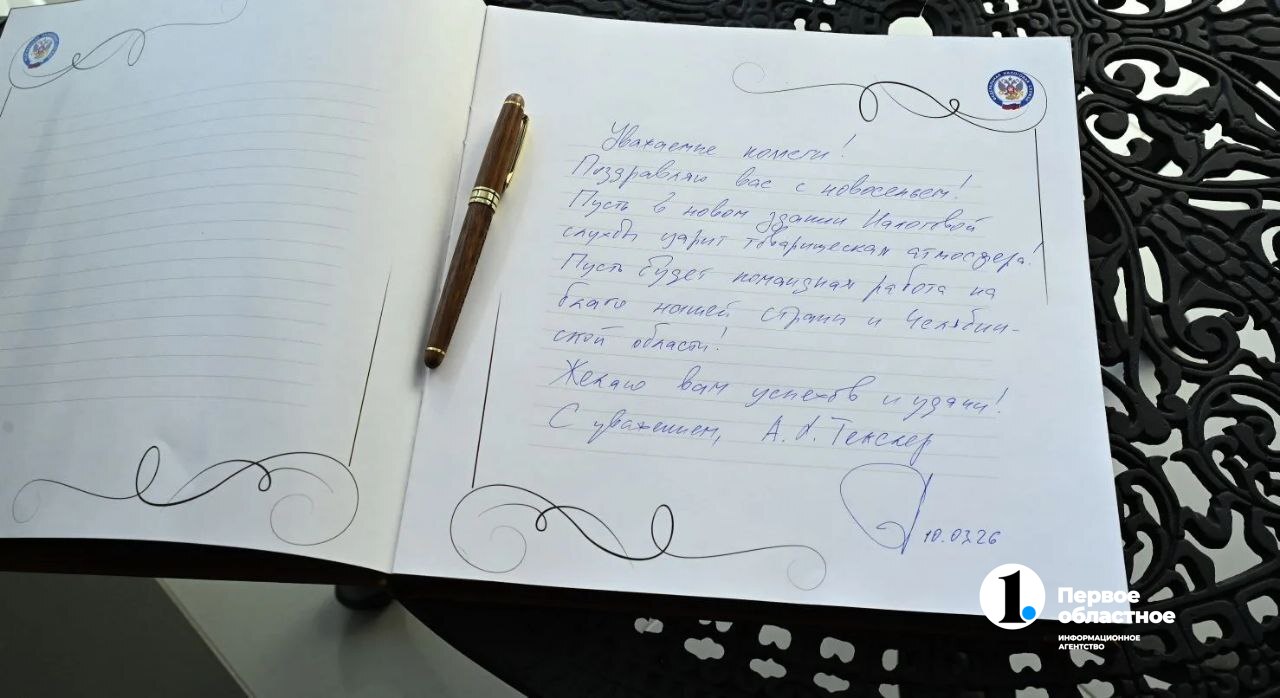 Уважаемые коллеги!
Поздравляю вас с новосельем!
Пусть в новом здании Налоговой
службы царит товарищеская атмосфера!
Пусть будет командная работа на
благо нашей страны и Челябин-
ской области!
Желаю вам успехов и удачи!
С уважением, А. Л. Текслер
10.03.26
1.
Первое
областное
ИНФОРМАЦИОННОЕ
АГЕНТСТВО